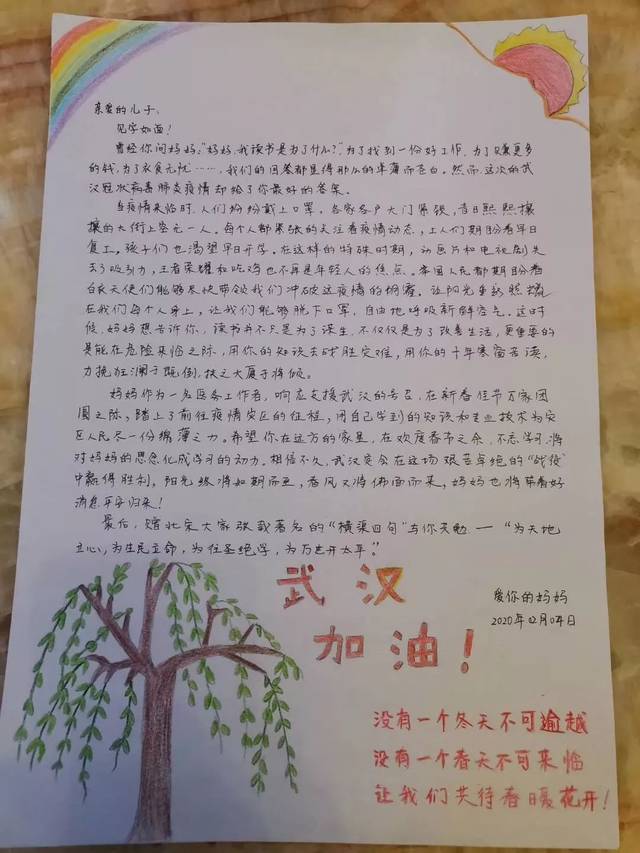 亲爱的儿子:
见字如面!
曾经你问妈妈:“妈妈,我读书是为了什么?”为了找到一份好工作、为了赚更多
的钱、为了衣食无忧……,我们的回答都显得那么的单薄而苍白。然而这次的武
汉冠状病毒肺炎疫情却给了你最好的答案。
当疫情来临时,人们纷纷戴上口罩。各家各户大门紧张,昔日熙熙攘
攘的大街上空无一人。每个人都紧张的关注着疫情动态,上人们期盼着早日
复工,孩子们也渴望早日开学。在这样的特殊时期,动画片和电视剧失
去了吸引力,王者荣耀和吃鸡也不再是年轻人的焦点。举国人民都期盼着
白衣天使们能够尽快带领我们冲破这疫情的烟霾。让阳光重新照耀
在我们每个人身上,让我们能够脱下口罩,自由地呼吸新鲜空气。这时
候,妈妈想告诉你,读书并不只是为了谋生,不仅仅是为了改善生活,更重要的
是能在危险来临之际,用你的知识去战胜灾难,用你的十年寒窗苦读,
力挽狂澜于既倒,扶大厦于将倾。
妈妈作为一名医务工作者,响应支援武汉的号召,在新春佳节万家团
圆之际,踏上了前往疫情灾区的征程,用自己学到的知识和专业技术为灾
区人民尽一份绵薄之力。希望你在远方的家里,在欢度春节之余,不忘学习,将
对妈妈的思念化成学习的动力。相信不久,武汉定会在这场艰苦卓绝的“战役”
中赢得胜利,阳光终将如期而至,春风又将拂面而来,妈妈也将带着好
消息平安归来!
最后,赠北宋大家张载著名的“横渠四句”与你共勉——“为天地
立心,为生民立命,为往圣继绝学,为万世开太平。”
爱你的妈妈
2020年02月04日
武汉
加油!
没有一个冬天不可逾越
没有一个春天不可来临
让我们共待春暖花开!